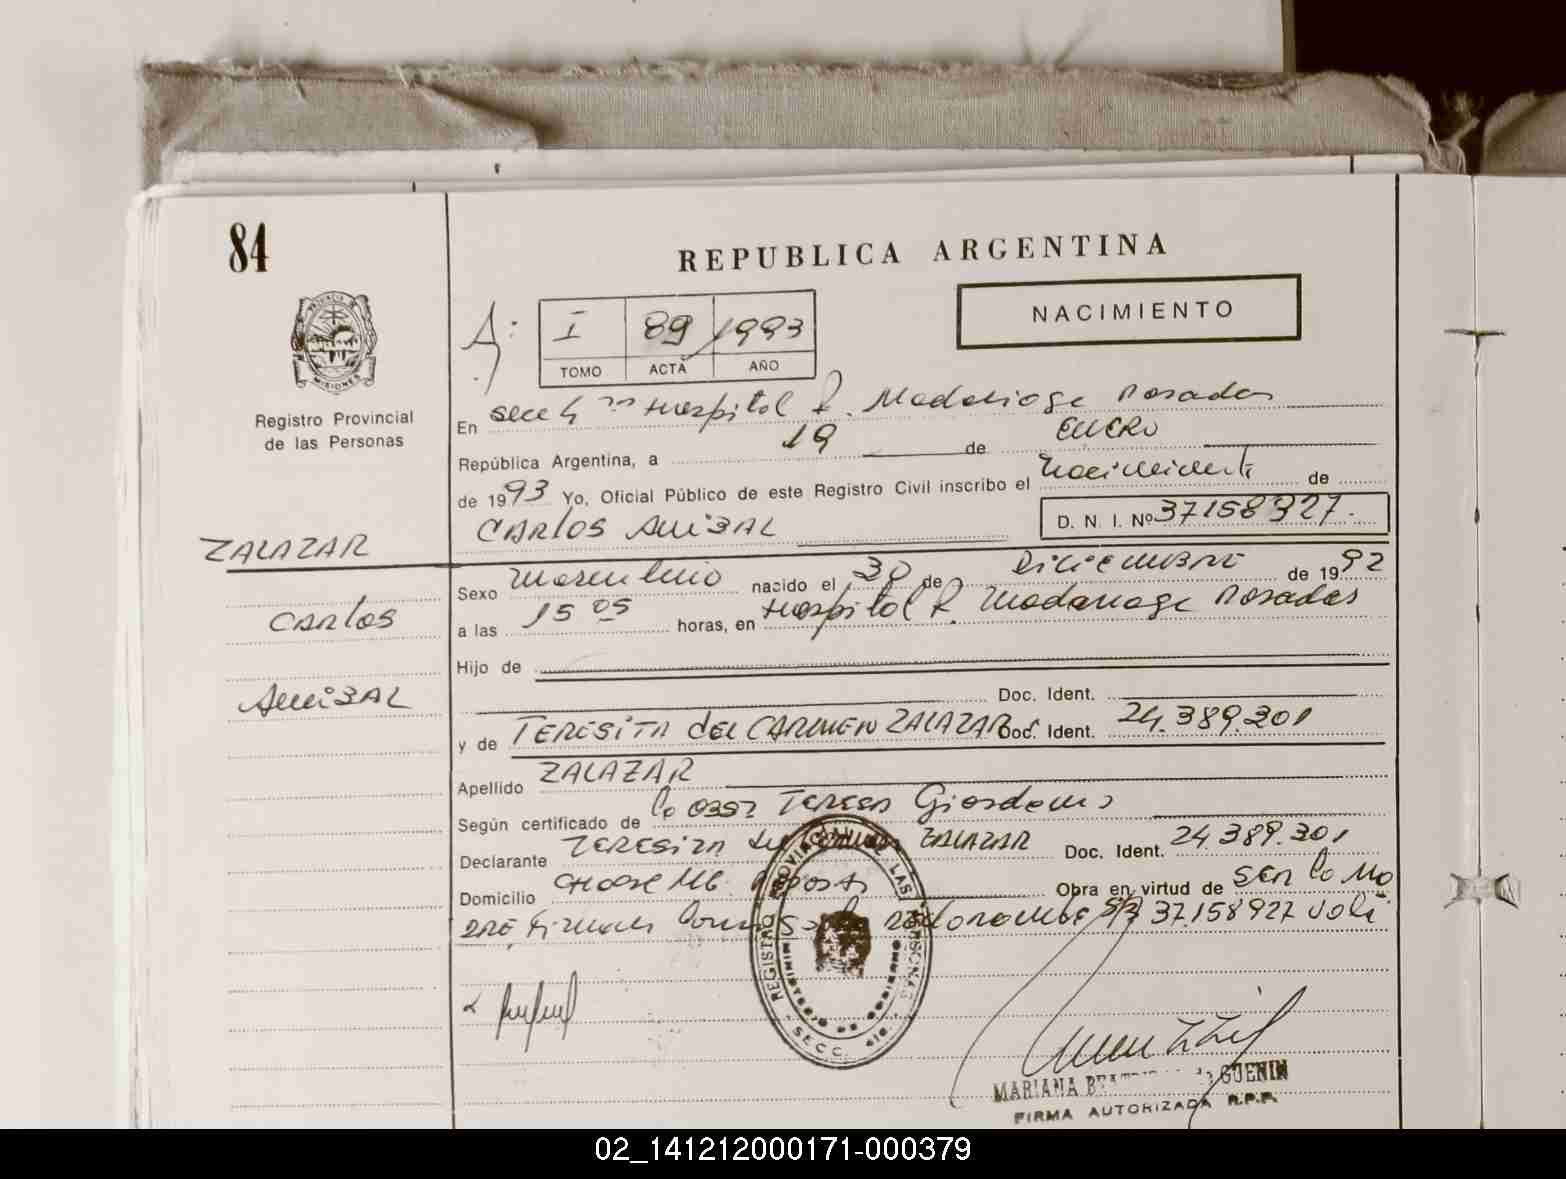 84
REPUBLICA ARGENTINA
NACIMIENTO
I 89 1993
TOMO ACTA AÑO
PROVINCIA DE MISIONES
Registro Provincial
de las Personas
En Secc 4 Hospital R. Madariaga Posadas
República Argentina, a 19 de ENERO
de 1993 Yo, Oficial Público de este Registro Civil inscribo el nacimiento de
CARLOS ANIBAL D. N. I. Nº 37158927.
ZALAZAR
Carlos
ANIBAL
Sexo masculino nacido el 30 de DICIEMBRE de 1992
a las 15 05 horas, en Hospital R. Madariaga Posadas
Hijo de
Doc. Ident.
y de TERESITA del CARMEN ZALAZAR Doc. Ident. 24.389.301
Apellido ZALAZAR
Según certificado de TERESA Giordanis
Declarante TERESITA del CARMEN ZALAZAR Doc. Ident. 24.389.301
Domicilio Posadas Obra en virtud de SER la MA
DRE, firman 37.158927 vale
REGISTRO PROVINCIAL DE LAS PERSONAS
MINISTERIO DE GOBIERNO
SECC. 4ta
MARIANA GUENIN
FIRMA AUTORIZADA R.P.P.
02_141212000171-000379